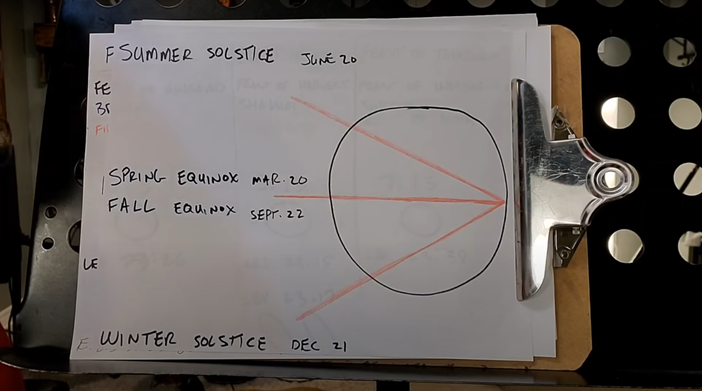 F SUMMER SOLSTICE JUNE 20
FE
SPRING EQUINOX MAR. 20
FALL EQUINOX SEPT. 22
LE
E WINTER SOLSTICE DEC 21